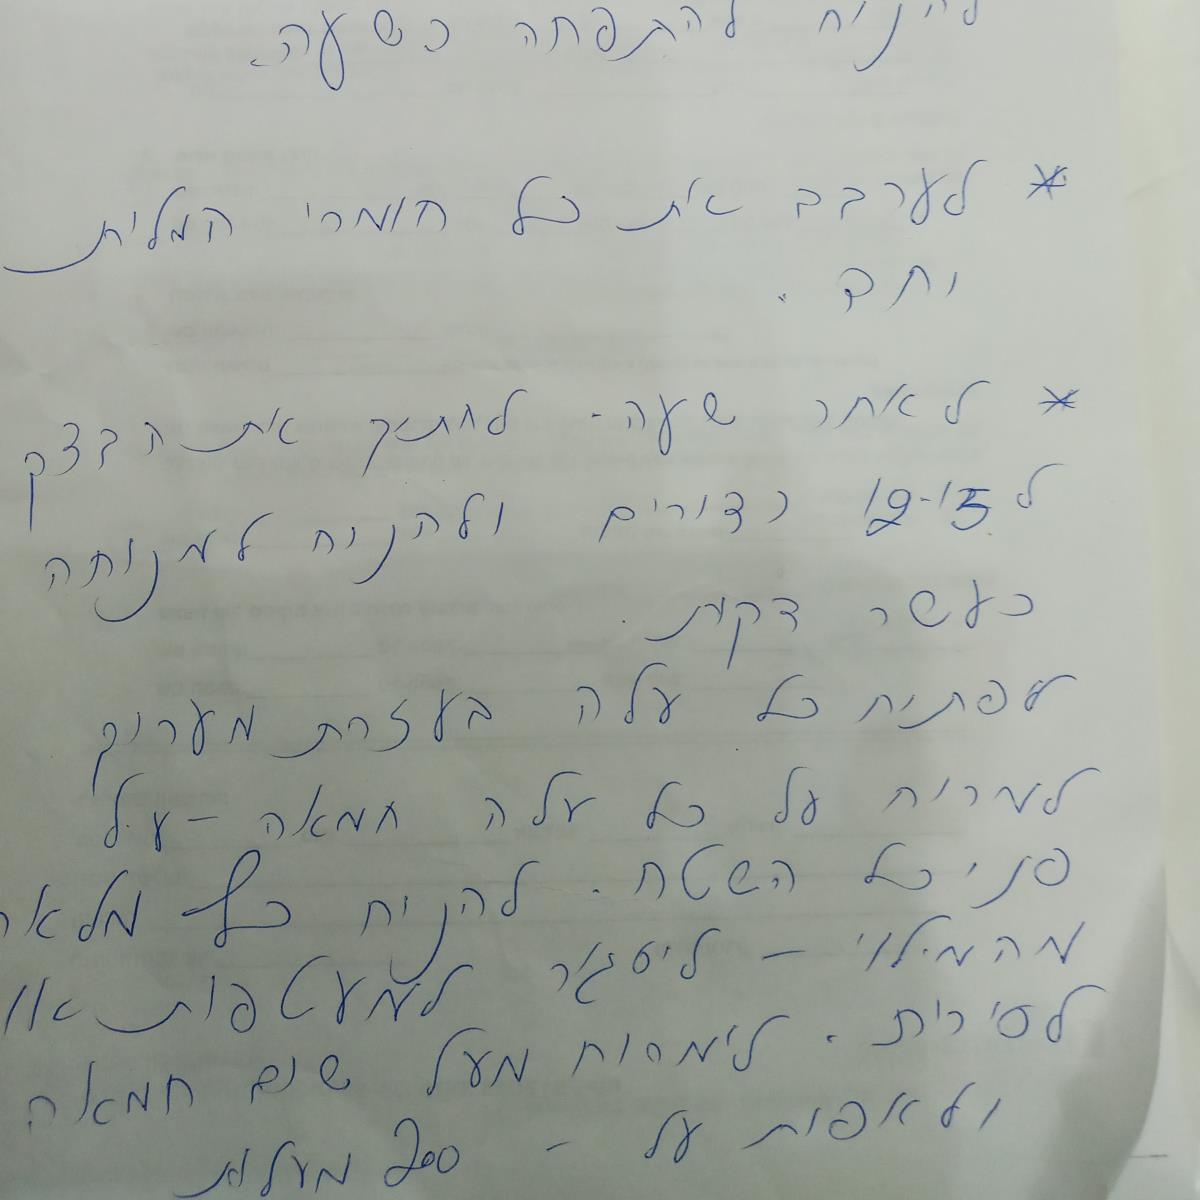 להניח להתפחה כשעה.
* לערבב את כל חומרי המלית
יחד.
* לאחר שעה - לחתיך את הבצק
ל 12-15 כדורים ולהניח למנוחה
כעשר דקות.
לפתוח כל עלה בעזרת מערוך
למרוח על כל עלה חמאה - על
פני כל השטח. להניח כף מלאה
מהמילוי - ליסגור למעטפות או
לסירות. לימרוח מעל שום חמאה
ולאפות על - 200 מעלות